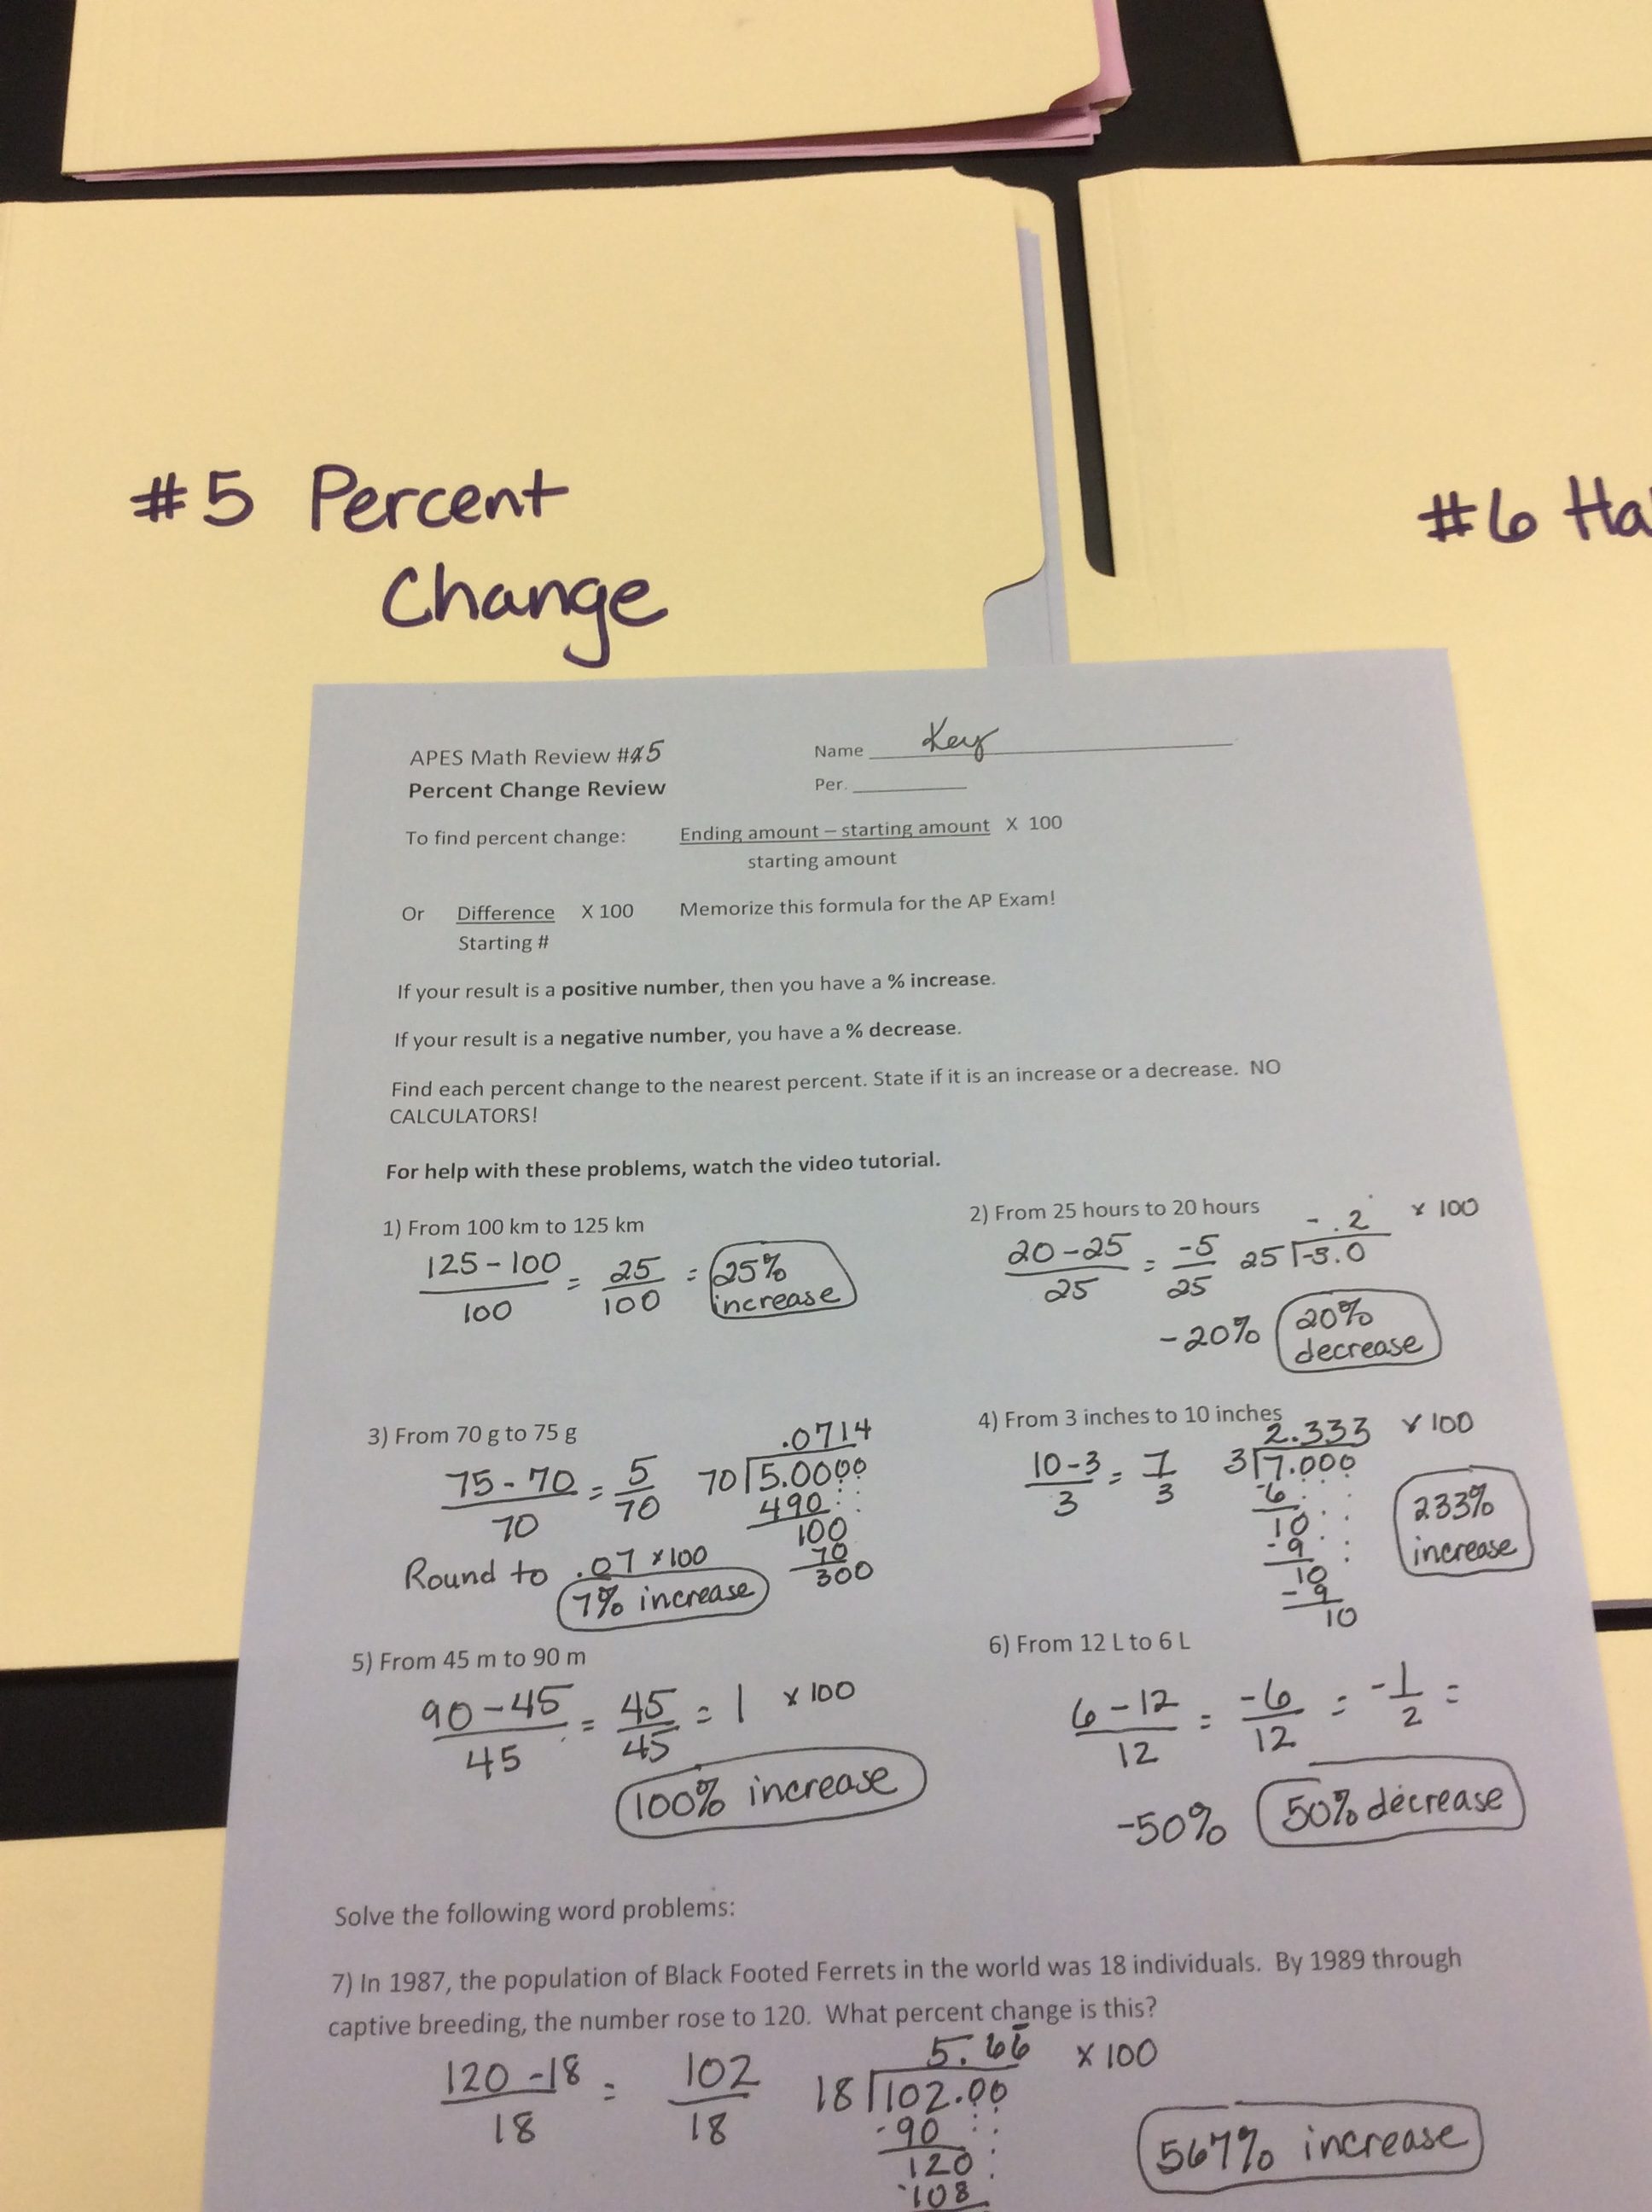 #5 Percent
Change
#6 Ha
APES Math Review #5
Name Key
Percent Change Review
Per.
To find percent change: Ending amount – starting amount X 100
starting amount
Or Difference X 100 Memorize this formula for the AP Exam!
Starting #
If your result is a positive number, then you have a % increase.
If your result is a negative number, you have a % decrease.
Find each percent change to the nearest percent. State if it is an increase or a decrease. NO
CALCULATORS!
For help with these problems, watch the video tutorial.
1) From 100 km to 125 km
125 - 100
100
= 25
100
= 25%
increase
2) From 25 hours to 20 hours
- .2 x 100
20 - 25
25
= -5
25
25 -5.0
-20% 20%
decrease
3) From 70 g to 75 g
.0714
75 - 70
70
= 5
70
70 5.0000
490
100
70
300
Round to .07 x100
7% increase
4) From 3 inches to 10 inches
2.333 x 100
10-3
3
= 7
3
3 7.000
-6
10
-9
10
-9
10
233%
increase
5) From 45 m to 90 m
90 - 45
45
= 45
45
= 1 x 100
100% increase
6) From 12 L to 6 L
6 - 12
12
= -6
12
= -1
2
=
-50% 50% decrease
Solve the following word problems:
7) In 1987, the population of Black Footed Ferrets in the world was 18 individuals. By 1989 through
captive breeding, the number rose to 120. What percent change is this?
5.66 x 100
120 - 18
18
= 102
18
18 102.00
-90
120
-108
567% increase